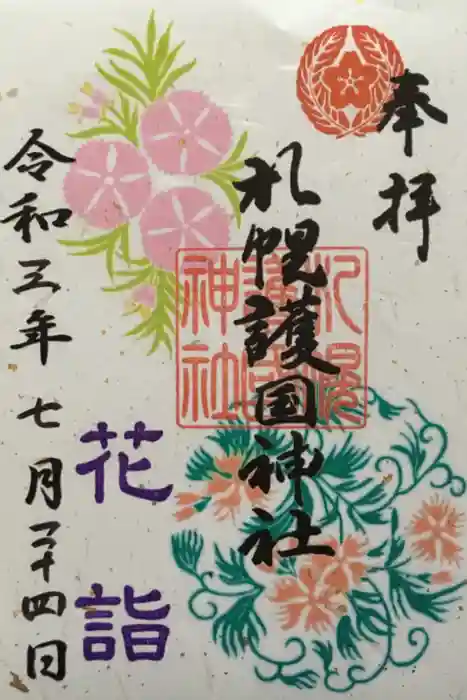 奉拝
札幌護国神社
札幌護国神社
花詣
令和三年七月二十四日